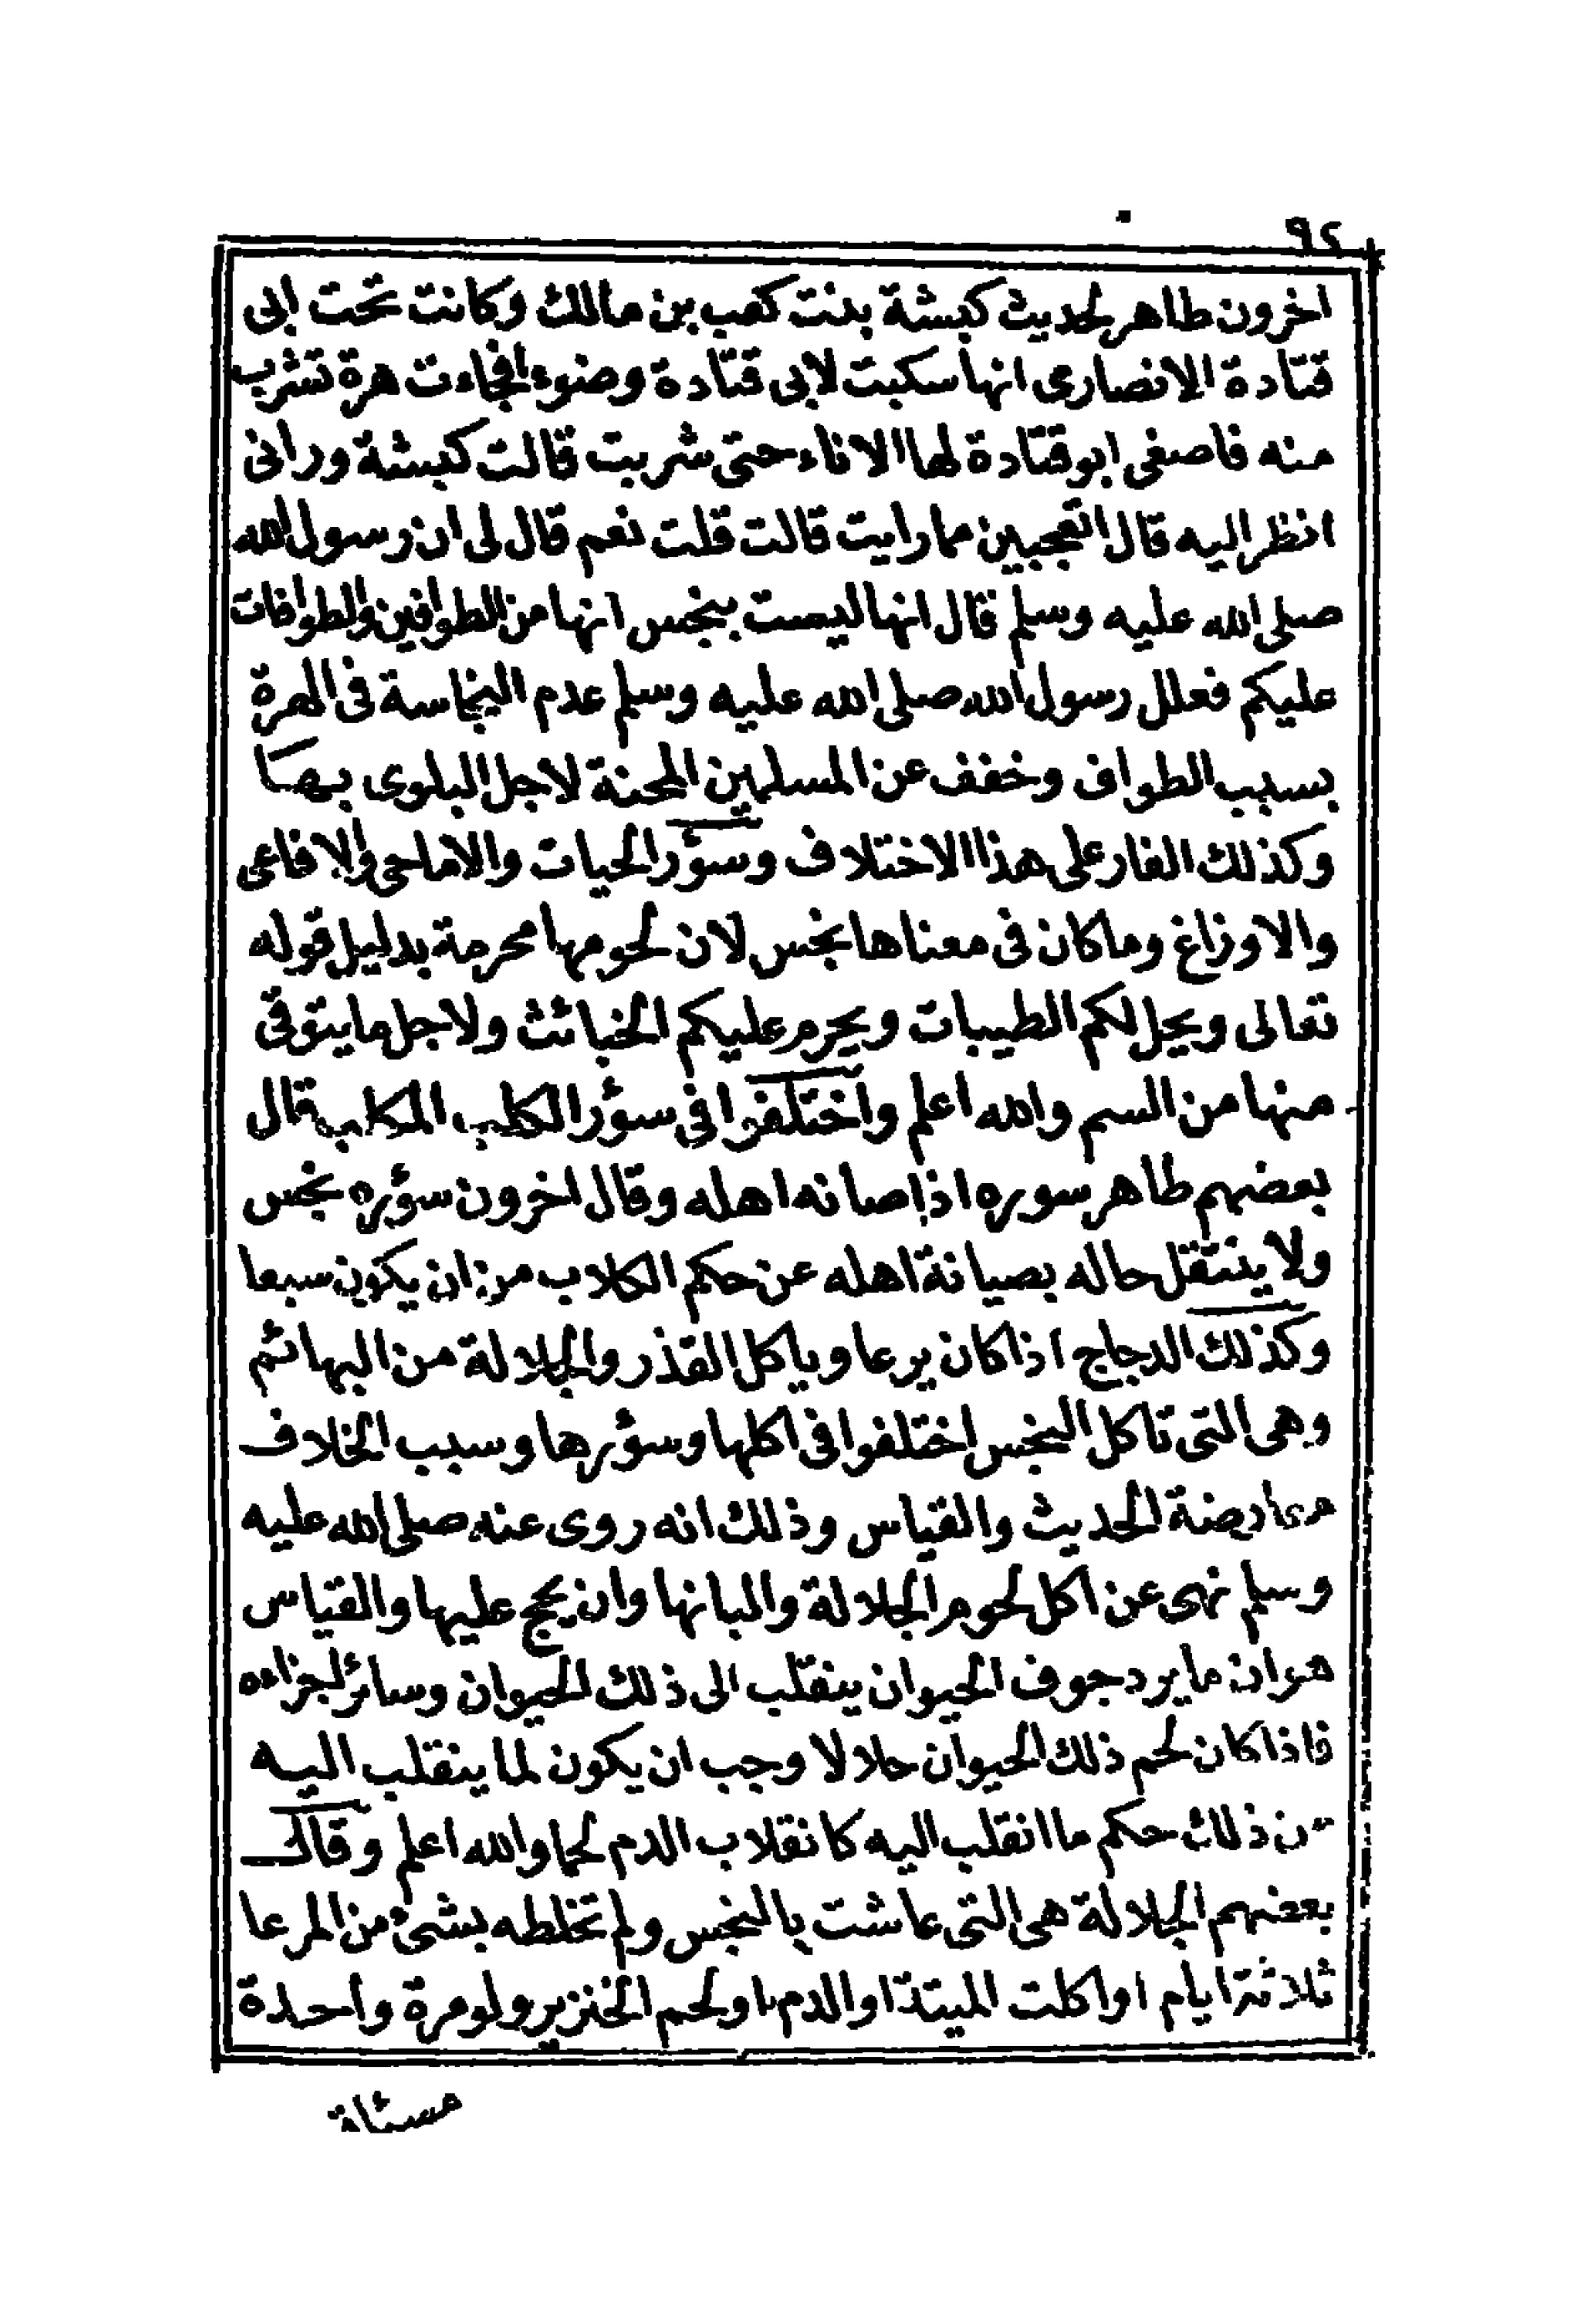 ٩٢
اخرون طاهر لحديث كبشة بنت كعب بن مالك وكانت تحت ابى
قتادة الانصارى انها سكبت لابى قتادة وضوءا فجاءت هرة تشرب
منه فاصغى ابو قتادة لها الاناء حتى شربت قالت كبشة ورانى
انظر اليه قال اتعجبين مما رايت قالت قلت نعم قال لى ان رسول الله
صلى الله عليه وسلم قال انها ليست بنجس انها من الطوافين والطوافات
عليكم فعلل رسول الله صلى الله عليه وسلم عدم النجاسة فى الهرة
بسبب الطواف وخفف عن المسلمين المحنة لاجل البلوى بها
وكذلك الفار على هذا الاختلاف وسؤر الحيات والاماحى والافاعى
والاوزاغ وما كان فى معناها نجس لان لحومها محرمة بدليل قوله
تعالى ويحل لكم الطيبات ويحرم عليكم الخبائث ولاجل ما يتوقى
منها من السم والله اعلم واختلفوا فى سؤر الكلب المكلب قال
بعضهم طاهر سوره اذا صانه اهله وقال اخرون سؤره نجس
ولا ينتقل حاله بصيانة اهله عن حكم الكلاب من ان يكون سبعا
وكذلك الدجاج اذا كان يرعا وياكل القذر والجلالة من البهائم
وهى التى تاكل النجس اختلفوا فى اكلها وسؤرها وسبب الخلاف
معارضة الحديث والقياس وذلك انه روى عنه صلى الله عليه
وسلم نهى عن اكل لحوم الجلالة والبانها وان يحج عليها والقياس
هوان ما يرد جوف الحيوان ينقلب الى ذلك الحيوان وسائر اجزاءه
فاذا كان لحم ذلك الحيوان حلالا وجب ان يكون لما ينقلب اليه
من ذلك حكم ما انقلب اليه كانقلاب الدم لحما والله اعلم وقال
بعضهم الجلالة هى التى عاشت بالنجس ولم تخلطه بشئ من المرعا
ثلاثة ايام او اكلت الميتة او الدم او لحم الخنزير ولو مرة واحدة
مسئلة